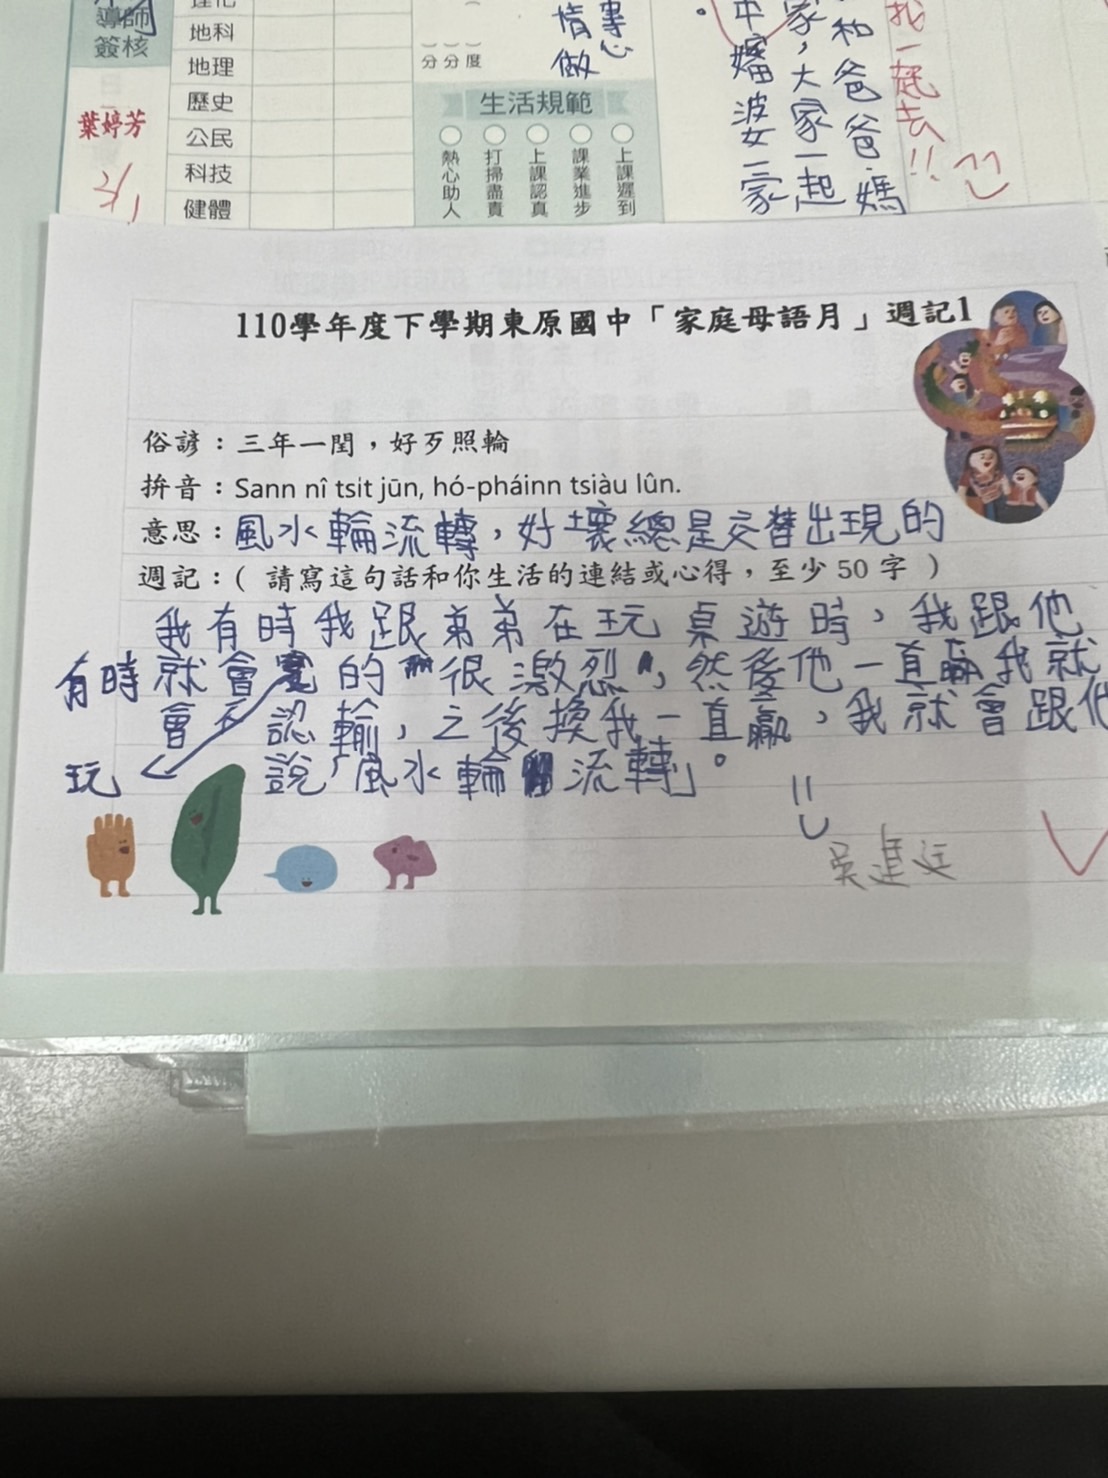 導師
簽核
葉婷芳
2/1
理化
地科
地理
歷史
公民
科技
健體
）））
分分度
事心
情做
生活規範
熱心助人
打掃盡責
上課認真
課業進步
上課遲到
找一起去!!
和爸爸媽
家，大家一起
中 波女一家
110學年度下學期東原國中「家庭母語月」週記1
俗諺：三年一閏，好歹照輪
拚音：Sann nî tsit jūn, hó-pháinn tsiàu lûn.
意思：風水輪流轉，好壞總是交替出現的
週記：( 請寫這句話和你生活的連結或心得，至少 50 字 )
我有時我跟弟弟在玩桌遊時，我跟他
有時就會 的"很激烈"，然後他一直贏我就
會不認輸，之後換我一直贏，我就會跟他
玩 說「風水輪流轉」。
吳進廷